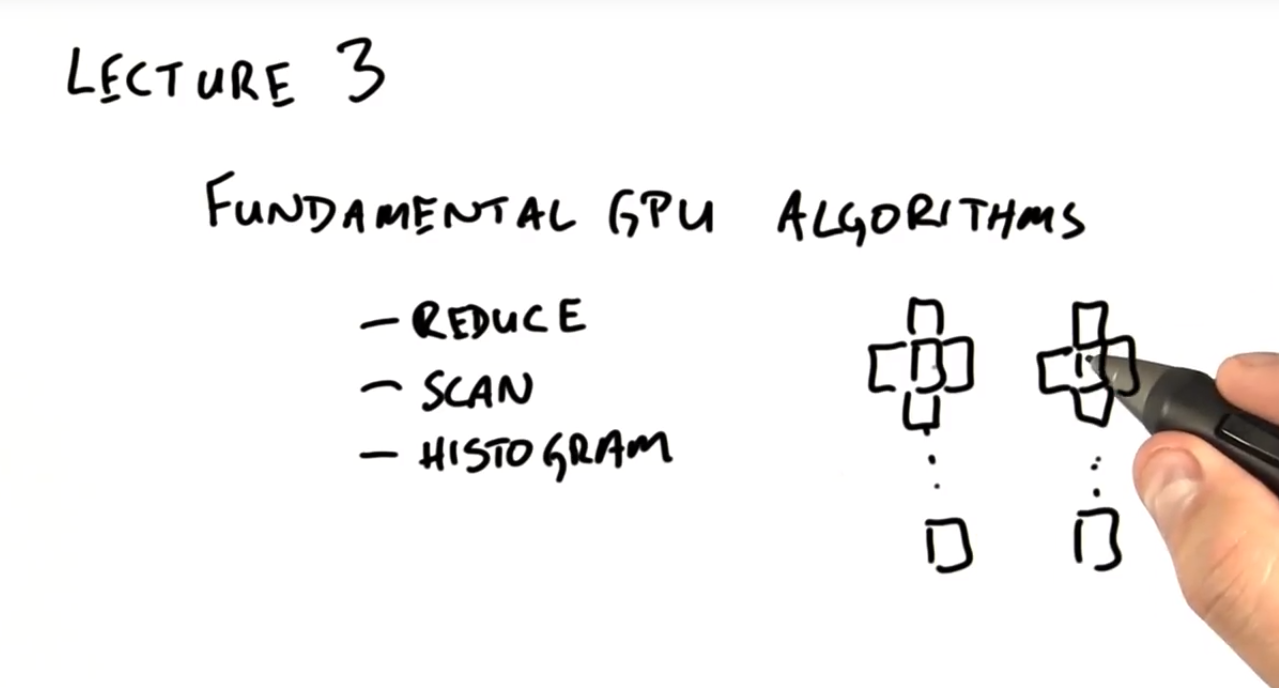 LECTURE 3
FUNDAMENTAL GPU ALGORITHMS
– REDUCE
– SCAN
– HISTOGRAM